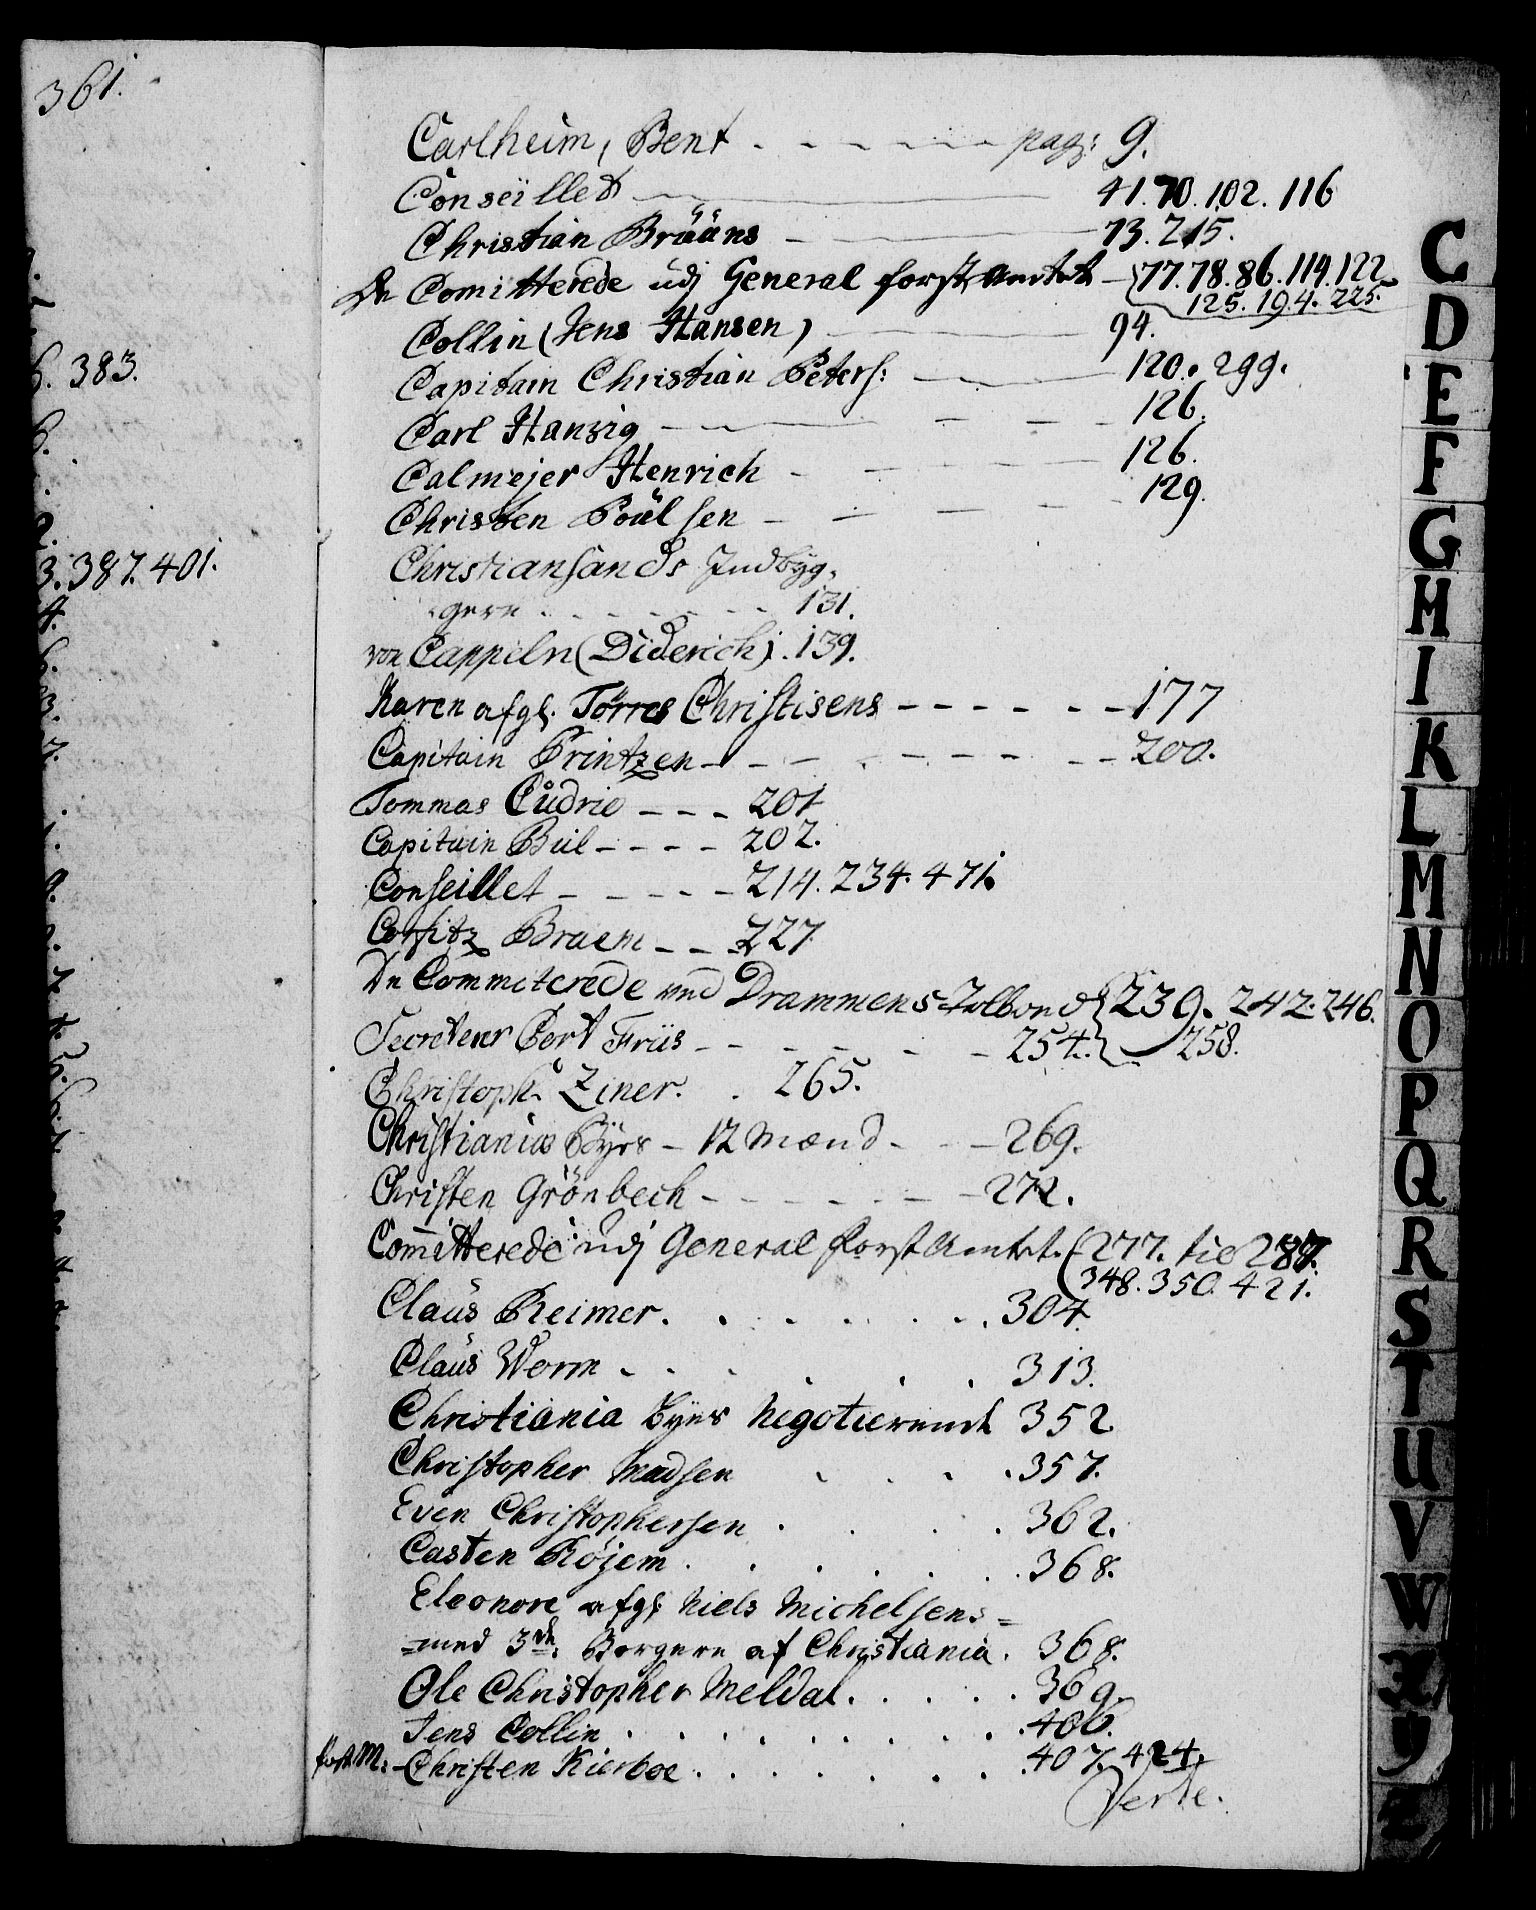 361.
6. 383.
6.
3. 387. 401.
4.
Carlheim, Bent . - - - - - pag: 9.
Conseillet — 41. 70. 102. 116
Christian Brüüns — 73. 215.
De Comitterede udj General forst Amtet — 77. 78. 86. 114. 122.
125. 194. 225.
Collin (Jens Hansen) — 94.
Capitain Christian Peters: — 120. 299.
Carl Hanzig — 126.
Calmejer Henrich - — 126.
Christen Poülsen - — 129.
Christiansands Indbyg-
gere . - - - - - 131.
von Cappeln (Diderich) . 139.
Karen afgl. Törres Christisens - - - - - - 177
Capitain Printzen - - - - - - - 200.
Tommas Cudrio - - - 201
Capitain Bül - - - - 202.
Conseillet - - - - - 214. 234. 471.
Corfitz Braem - - 227.
De Commiterede ved Drammens Tolbod 239. 242. 246.
Secreterr Cort Friis - - - - - - 254. 258.
Christoph. Ziner. . 265.
Christianiæ Byes - 12 Mænd - - - 269.
Christen Grönbech - - - - - - 272.
Comitterede udj General forst Amtet. 277. til 287.
348. 350. 421.
Claus Reimer. . . . . . . 304.
Claus Worm - - - . . . 313.
Christiania Byes Negotierende 352
Christopher Madsen . . . . 357.
Even Christophersen . . . . 362.
Casten Röjem . . . . . . 368.
Eleonore afgl. Niels Michelsens =
=med 3de: Borgere af Christiania . 368.
Ole Christopher Meldal . . . . . 369.
Jens Collin . . . . . . . 406.
forst M: - Christen Kierboe . . . . . . 407. 424.
Verte.
C
D
E
F
G
H
I
K
L
M
N
O
P
Q
R
S
T
U
V
W
X
Y
Z